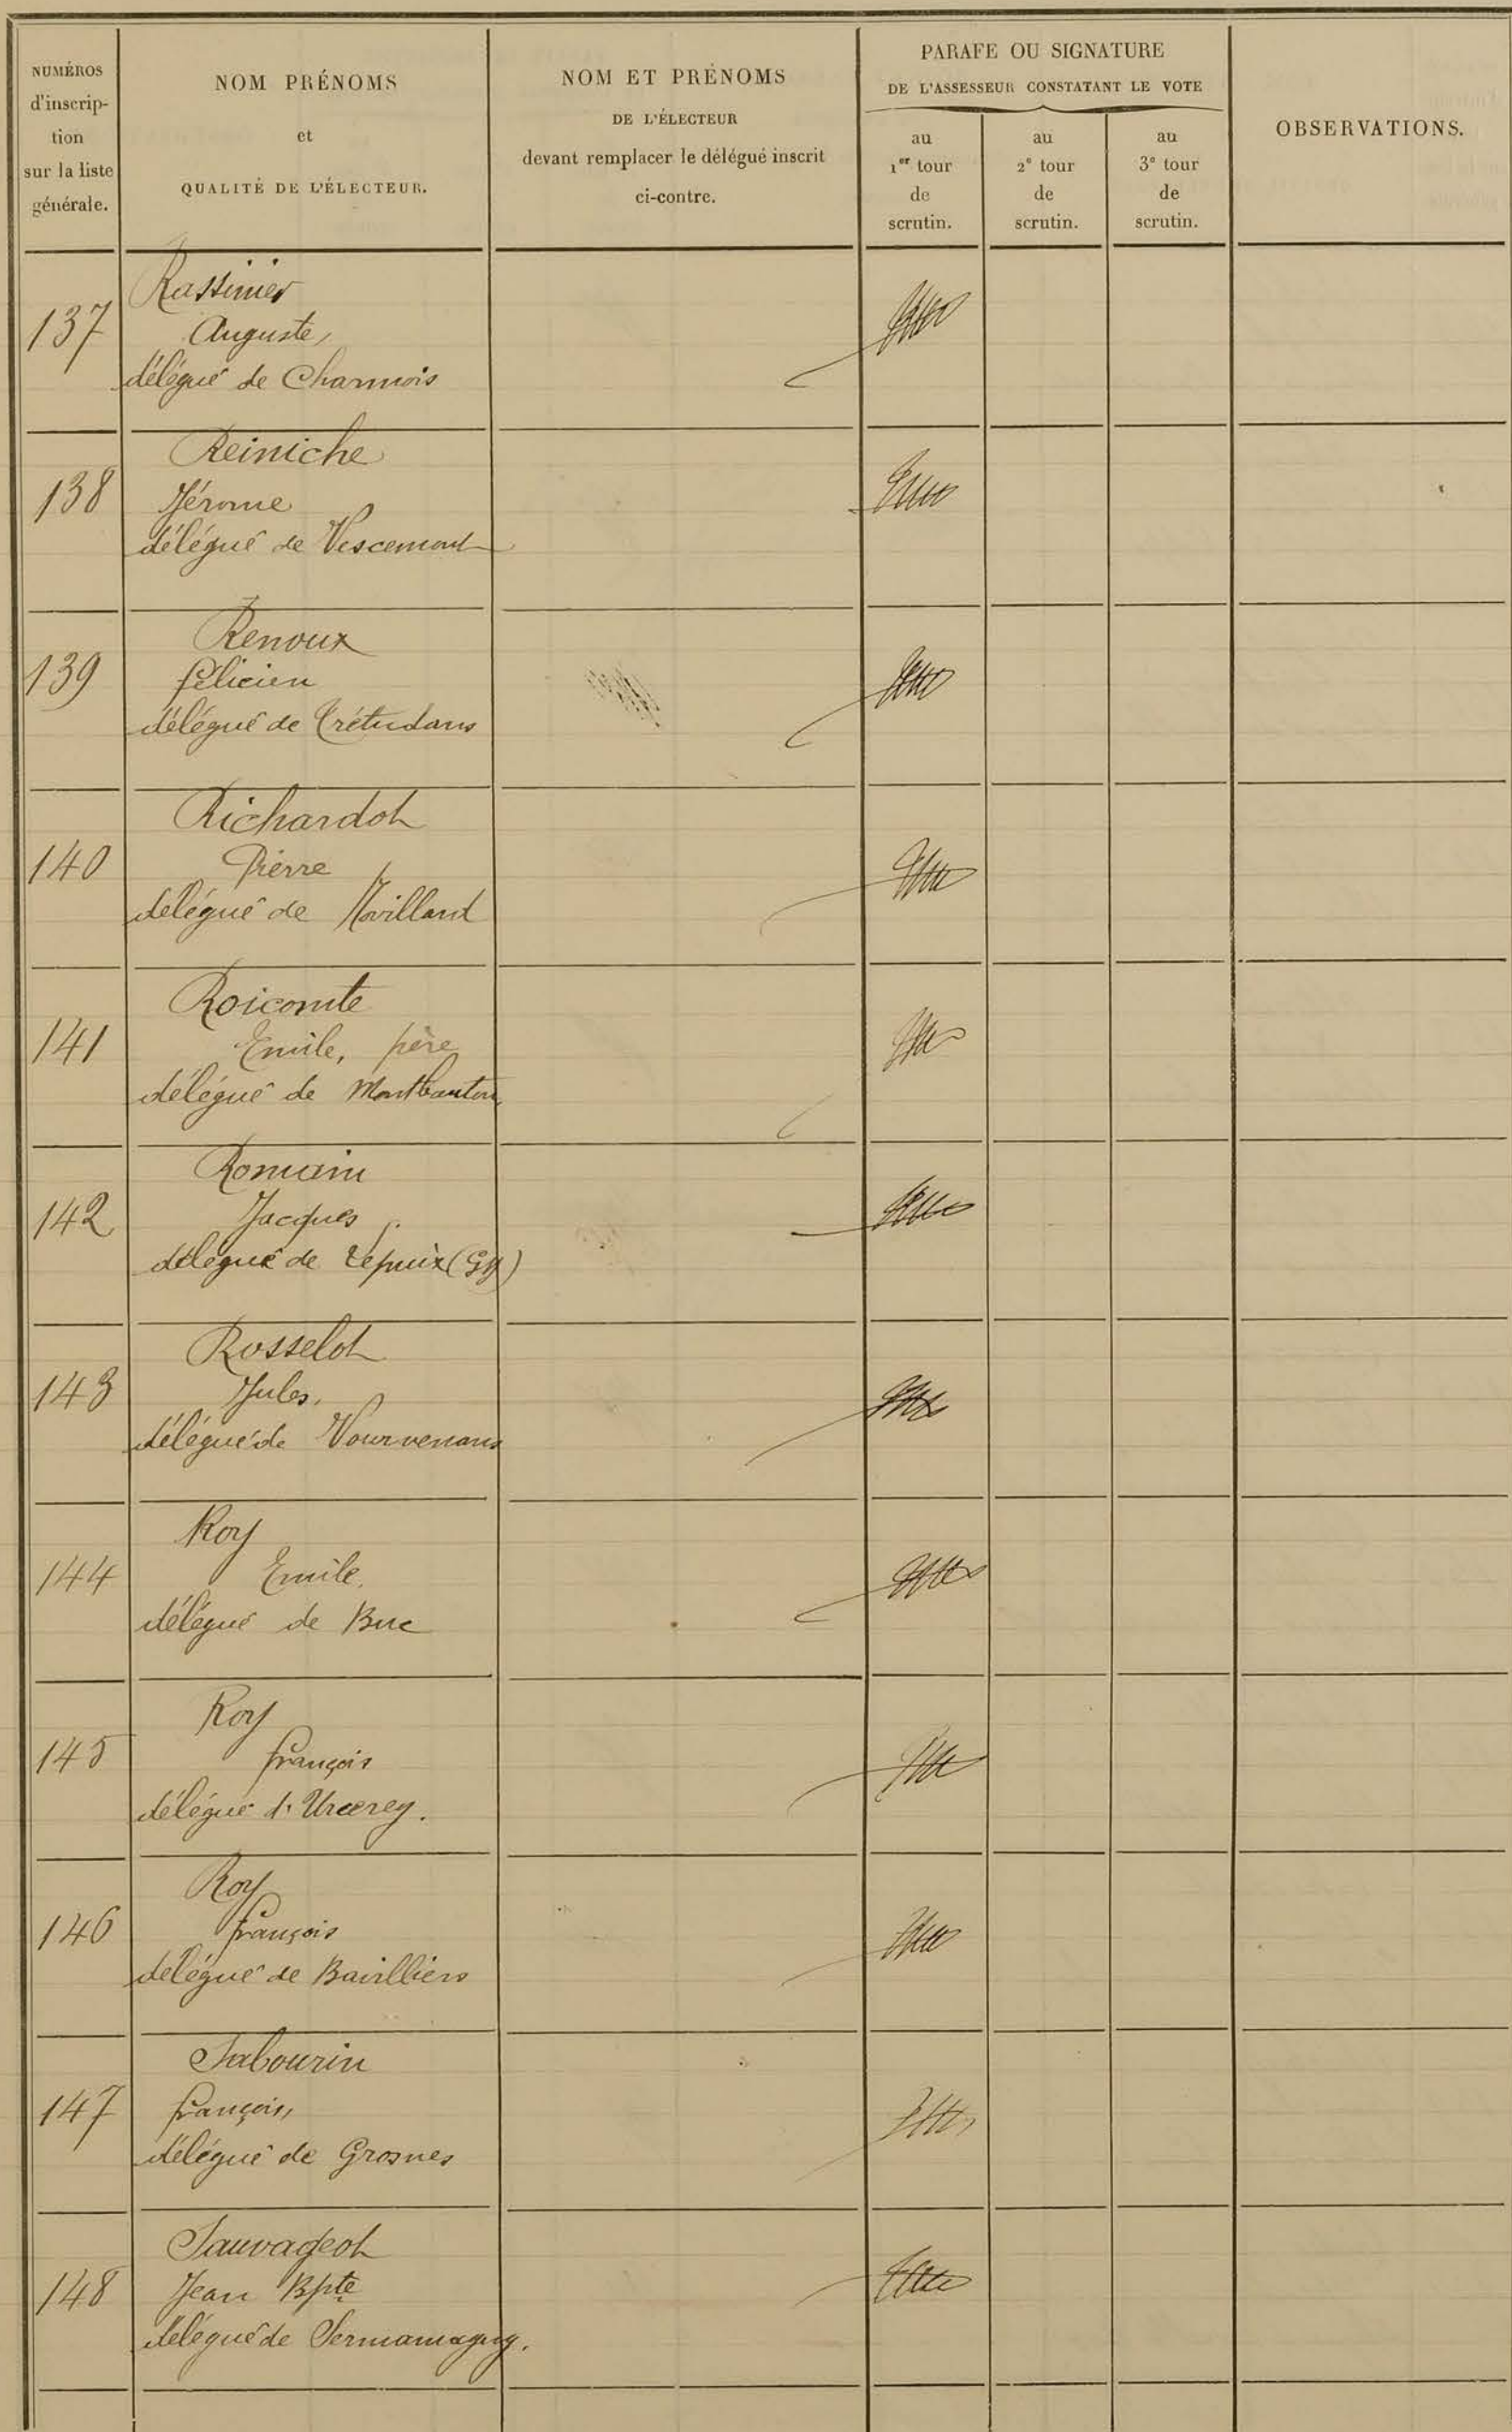 NUMÉROS
d'inscrip-
tion
sur la liste
générale.
NOM PRÉNOMS
et
QUALITÉ DE L'ÉLECTEUR.
NOM ET PRÉNOMS
DE L'ÉLECTEUR
devant remplacer le délégué inscrit
ci-contre.
PARAFE OU SIGNATURE
DE L'ASSESSEUR CONSTATANT LE VOTE
au
1er tour
de
scrutin.
au
2e tour
de
scrutin.
au
3e tour
de
scrutin.
OBSERVATIONS.
137
Rassinier
Auguste,
délégué de Charmois
138
Reiniche
Jérome
délégué de Vescemont
139
Renoux
félicien
délégué de Trétudans
140
Richardot
Pierre
délégué de Novillard
141
Roicomte
Emile, père
délégué de Montbouton
142
Romain
Jacques
délégué de Lepuix (Gy)
143
Rosselot
Jules,
délégué de Vourvenans
144
Roy
Emile,
délégué de Buc
145
Roy
françois
délégué d'Urcerey.
146
Roy
françois
délégué de Bavilliers
147
Sabourin
françois,
délégué de Grosnes
148
Sauvageot
Jean Bpte
délégué de Sermamagny.